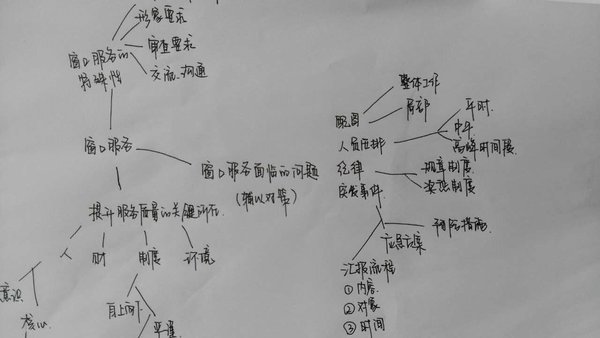 形象要求
审查要求
交流、沟通
窗口服务的
特殊性
窗口服务
窗口服务面临的问题
(辅以对策)
提升服务质量的关键所在
人
财
制度
环境
意识
自上而下
平道
整体工作
局部
范围
人员安排
平时
中午
高峰时间段
纪律
规章制度
奖惩制度
突发事件
预防措施
应急方案
汇报流程
① 内容
② 对象
③ 时间